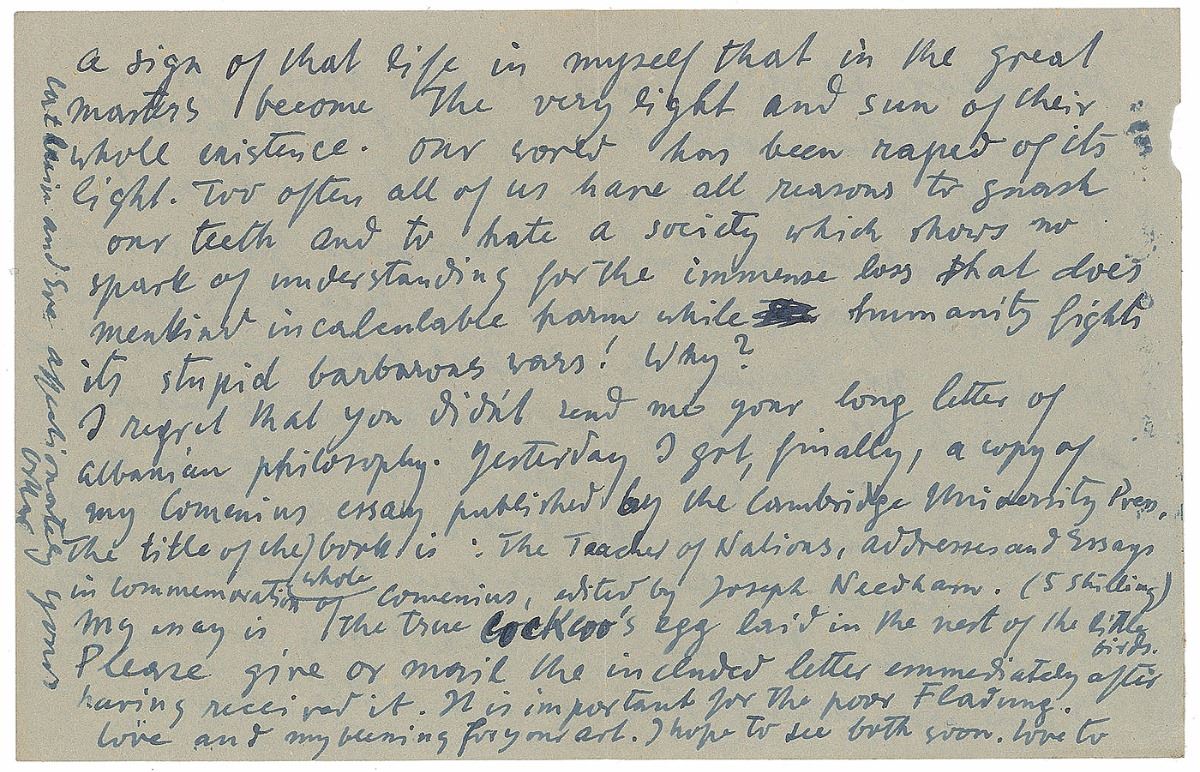 a sign of that life in myself that in the great
masters become the very light and sun of their
whole existence. Our world has been raped of its
light. Too often all of us have all reasons to gnash
our teeth and to hate a society which shows no
spark of understanding for the immense loss that does
mankind incalculable harm while humanity fights
its stupid barbarous wars! Why?
I regret that you didn't send me your long letter of
albanian philosophy. Yesterday I got, finally, a copy of
my Comenius essay published by the Cambridge University Press.
The title of the whole book is : The Teacher of Nations, addresses and Essays
in commemoration of Comenius, edited by Joseph Needham. (5 shilling)
My essay is the true cockoo's egg laid in the nest of the little
birds.
Please give or mail the included letter emmediately after
having received it. It is important for the poor Fladung.
love and my for your art. I hope to see both soon. Love to
and Eva affectionately yours
Oskar